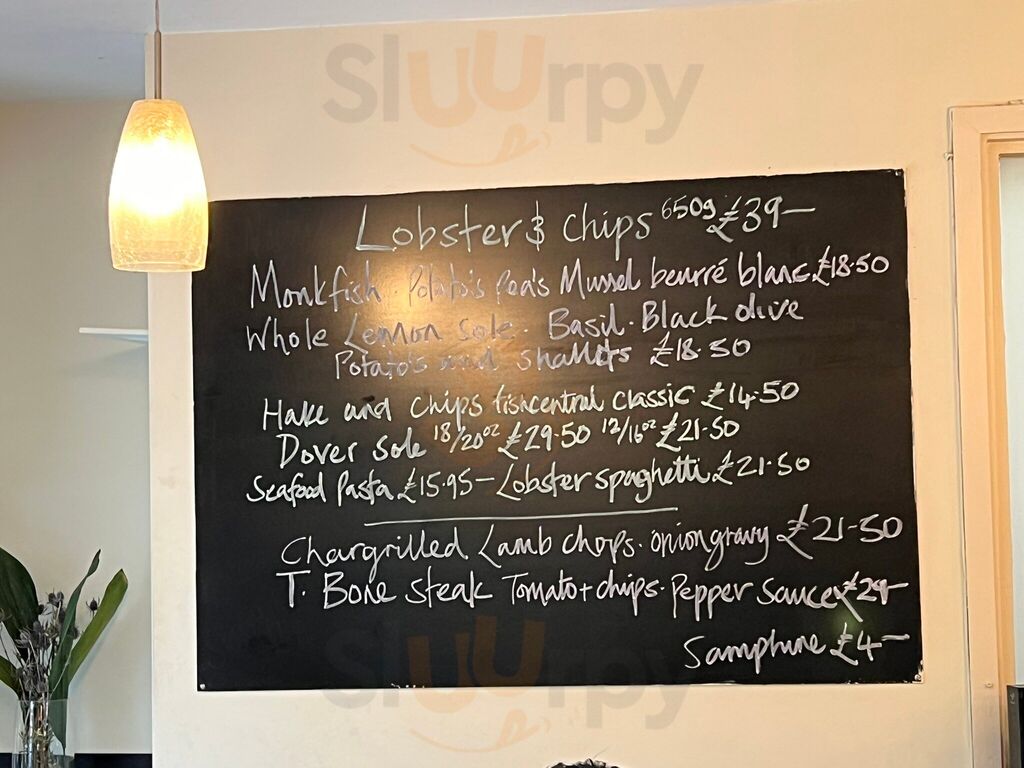 Sluurpy
Lobster & Chips 650g £39-
Monkfish. Potato's Pea's Mussel beurré blanc £18.50
Whole Lemon Sole. Basil. Black olive
Potato's and shallots £18.50
Hake and chips fishcentral classic £14.50
Dover sole 18/20oz £29.50 12/16oz £21.50
Seafood Pasta £15.95 - Lobster spaghetti £21.50
Chargrilled Lamb chops. onion gravy £21-50
T. Bone steak Tomato + chips. Pepper sauce £29-
Samphire £4-
Sluurpy